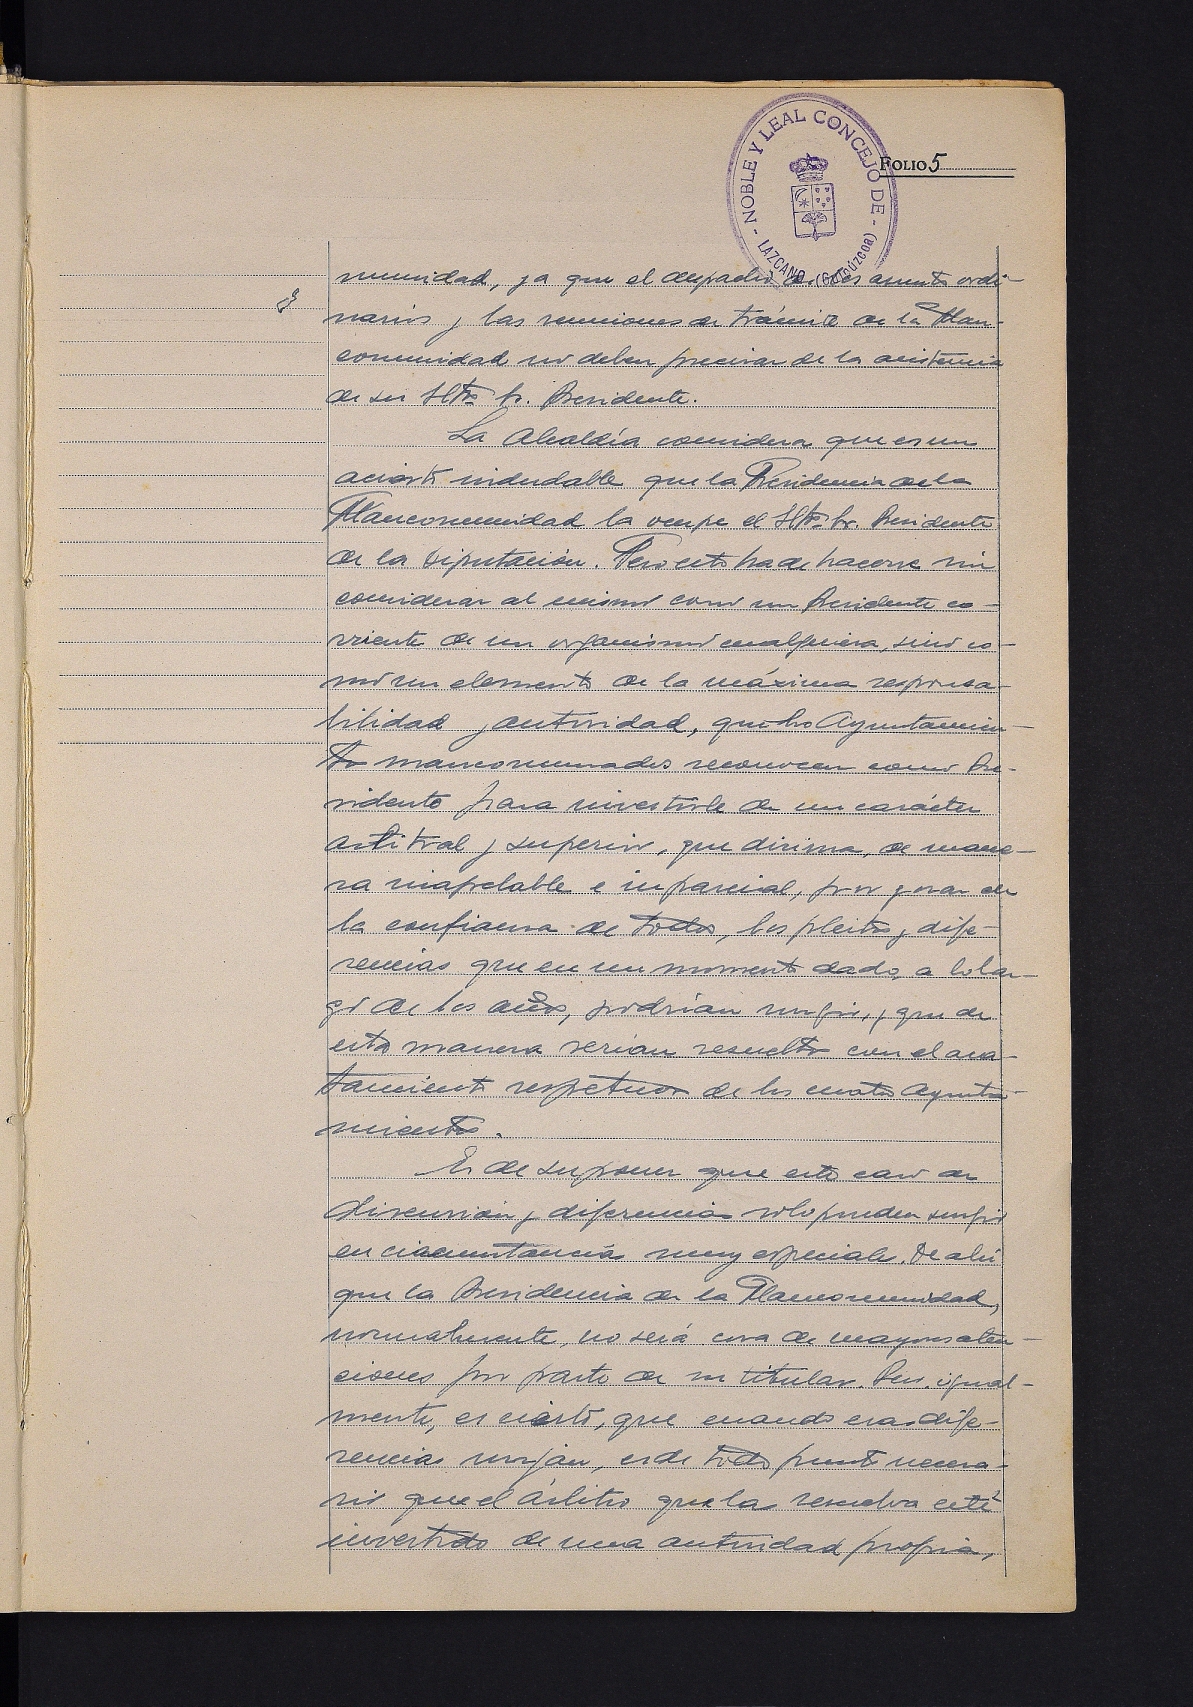 - NOBLE Y LEAL CONCEJO DE -
LAZCANO (Guipúzcoa)
FOLIO 5
munidad, ya que el despacho de los asuntos ordi-
narios y las reuniones de trámite de la Man-
comunidad no deben precisar de la asistencia
de su Iltmo Sr. Presidente.
La Alcaldía considera que es un
acierto indudable que la Presidencia de la
Mancomunidad la ocupe el Iltmo Sr. Presidente
de la Diputación. Pero esto ha de hacerse sin
considerar al mismo como un Presidente co-
rriente de un organismo cualquiera, sino co-
mo un elemento de la máxima responsa-
bilidad y autoridad, que los Ayuntamien-
tos mancomunados reconocen como Pre-
sidente para investirle de un carácter
arbitral y superior, que dirima, de mane-
ra inapelable e imparcial, por gozar de
la confianza de todos, los pleitos y dife-
rencias que en un momento dado, a lo lar-
go de los años, podrían surgir, y que de
esta manera serían resueltos con el aca-
tamiento respetuoso de los cuatro Ayunta-
mientos.
Es de suponer que este caso de
discusión y diferencias solo pueden surgir
en circunstancias muy especiales. De ahí
que la Presidencia de la Mancomunidad,
normalmente, no será cosa de mayores aten-
ciones por parte de su titular. Pero, igual-
mente, es cierto, que cuando esas dife-
rencias surjan, es de todo punto necesa-
rio que el árbitro que las resuelva esté
investido de una autoridad propia,